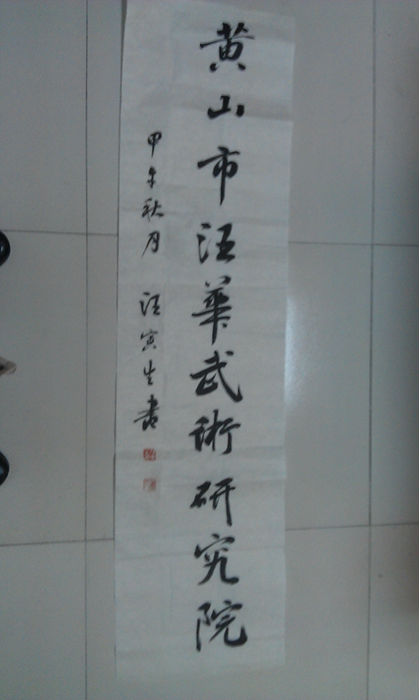 黄山市汪華武術研究院
甲午秋月 汪寅生書